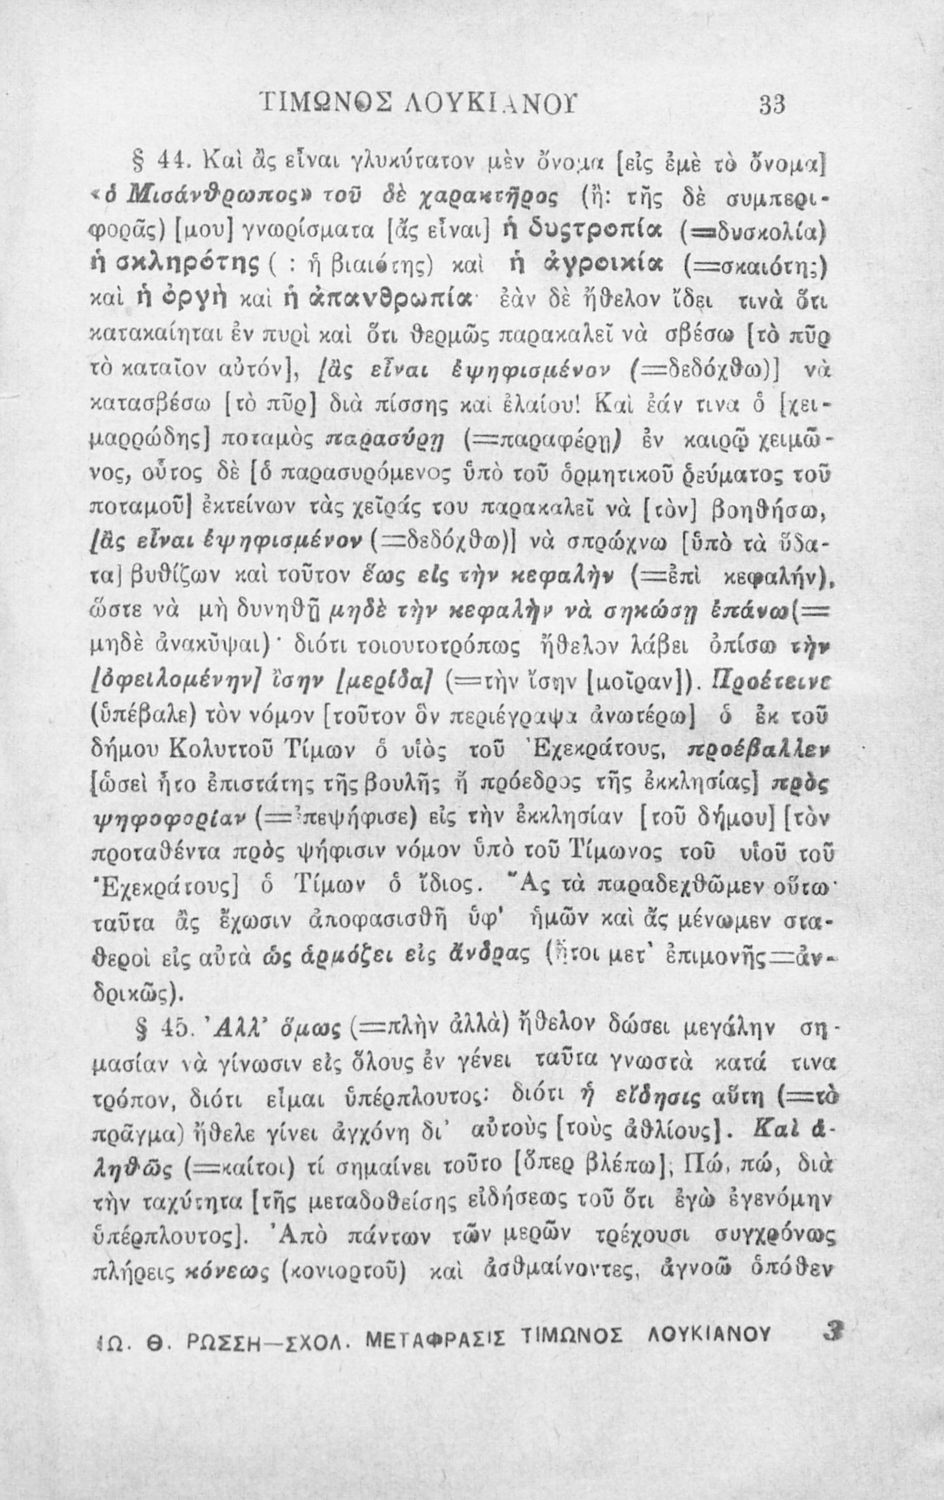 ΤΙΜΩΝΟΣ ΛΟΥΚΙΑΝΟΥ 33
§ 44. Καὶ ἂς εἶναι γλυκύτατον μὲν ὄνομα [εἰς ἐμὲ τὸ ὄνομα]
«ὁ Μισάνθρωπος» τοῦ δὲ χαρακτῆρος (ἢ: τῆς δὲ συμπερι-
φορᾶς) [μου] γνωρίσματα [ἂς εἶναι] ἡ δυςτροπία (=δυσκολία)
ἡ σκληρότης ( : ἡ βιαιότης) καὶ ἡ ἀγροικία (=σκαιότης)
καὶ ἡ ὀργὴ καὶ ἡ ἀπανθρωπία· ἐὰν δὲ ἤθελον ἴδει τινὰ ὅτι
κατακαίηται ἐν πυρὶ καὶ ὅτι θερμῶς παρακαλεῖ νὰ σβέσω [τὸ πῦρ
τὸ καταῖον αὐτόν], [ἂς εἶναι ἐψηφισμένον (=δεδόχθω)] νὰ
κατασβέσω [τὸ πῦρ] διὰ πίσσης καὶ ἐλαίου! Καὶ ἐάν τινα ὁ [χει-
μαρρώδης] ποταμὸς παρασύρῃ (=παραφέρῃ) ἐν καιρῷ χειμῶ-
νος, οὗτος δὲ [ὁ παρασυρόμενος ὑπὸ τοῦ ὁρμητικοῦ ῥεύματος τοῦ
ποταμοῦ] ἐκτείνων τὰς χεῖράς του παρακαλεῖ νὰ [τὸν] βοηθήσω,
[ἂς εἶναι ἐψηφισμένον (=δεδόχθω)] νὰ σπρώχνω [ὑπὸ τὰ ὕδα-
τα] βυθίζων καὶ τοῦτον ἕως εἰς τὴν κεφαλὴν (=ἐπὶ κεφαλήν),
ὥστε νὰ μὴ δυνηθῇ μηδὲ τὴν κεφαλὴν νὰ σηκώσῃ ἐπάνω(=
μηδὲ ἀνακῦψαι)· διότι τοιουτοτρόπως ἤθελον λάβει ὀπίσω τὴν
[ὀφειλομένην] ἴσην [μερίδα] (=τὴν ἴσην [μοῖραν]). Προέτεινε
(ὑπέβαλε) τὸν νόμον [τοῦτον ὃν περιέγραψα ἀνωτέρω] ὁ ἐκ τοῦ
δήμου Κολυττοῦ Τίμων ὁ υἱὸς τοῦ Ἐχεκράτους, προέβαλλεν
[ὡσεὶ ἦτο ἐπιστάτης τῆς βουλῆς ἢ πρόεδρος τῆς ἐκκλησίας] πρὸς
ψηφοφορίαν (=᾿πεψήφισε) εἰς τὴν ἐκκλησίαν [τοῦ δήμου] [τὸν
προταθέντα πρὸς ψήφισιν νόμον ὑπὸ τοῦ Τίμωνος τοῦ υἱοῦ τοῦ
Ἐχεκράτους] ὁ Τίμων ὁ ἴδιος. Ἂς τὰ παραδεχθῶμεν οὕτω·
ταῦτα ἂς ἔχωσιν ἀποφασισθῆ ὑφ' ἡμῶν καὶ ἂς μένωμεν στα-
θεροὶ εἰς αὐτὰ ὡς ἁρμόζει εἰς ἄνδρας (ἤτοι μετ' ἐπιμονῆς=ἀν-
δρικῶς).
§ 45. Ἀλλ' ὅμως (=πλὴν ἀλλὰ) ἤθελον δώσει μεγάλην ση-
μασίαν νὰ γίνωσιν εἰς ὅλους ἐν γένει ταῦτα γνωστὰ κατά τινα
τρόπον, διότι εἶμαι ὑπέρπλουτος· διότι ἡ εἴδησις αὕτη (=τὸ
πρᾶγμα) ἤθελε γίνει ἀγχόνη δι' αὐτοὺς [τοὺς ἀθλίους]. Καὶ ἀ-
ληθῶς (=καίτοι) τί σημαίνει τοῦτο [ὅπερ βλέπω]; Πώ, πώ, διὰ
τὴν ταχύτητα [τῆς μεταδοθείσης εἰδήσεως τοῦ ὅτι ἐγὼ ἐγενόμην
ὑπέρπλουτος]. Ἀπὸ πάντων τῶν μερῶν τρέχουσι συγχρόνως
πλήρεις κόνεως (κονιορτοῦ) καὶ ἀσθμαίνοντες, ἀγνοῶ ὁπόθεν
ΙΩ. Θ. ΡΩΣΣΗ—ΣΧΟΛ. ΜΕΤΑΦΡΑΣΙΣ ΤΙΜΩΝΟΣ ΛΟΥΚΙΑΝΟΥ 3